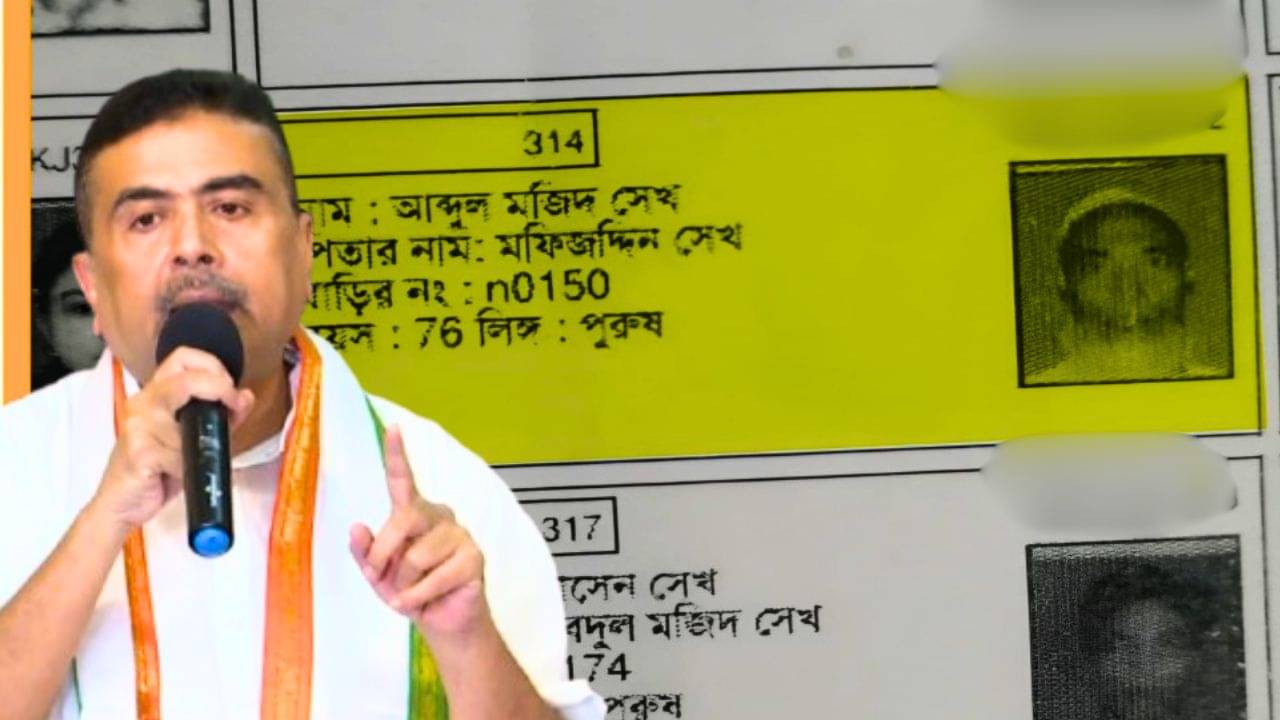 314
নাম : আব্দুল মজিদ সেখ
পিতার নাম: মফিজদ্দিন সেখ
বাড়ির নং : n0150
বয়স : 76 লিঙ্গ : পুরুষ
317
সেখ
মজিদ সেখ
174
পুরুষ